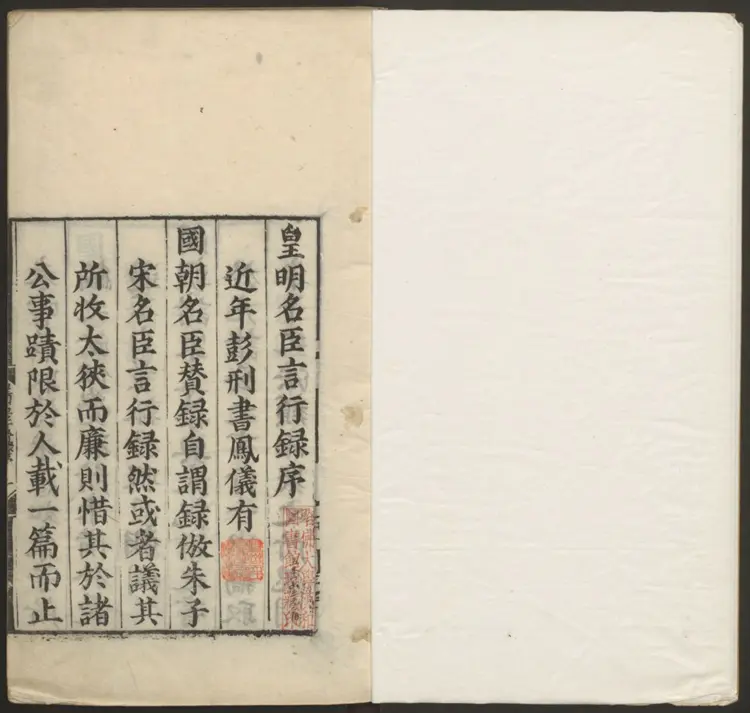 皇明名臣言行録序
近年彭刑書鳳儀有
國朝名臣賛録自謂録倣朱子
宋名臣言行録然或者議其
所收太狹而廉則惜其於諸
公事蹟限於人載一篇而止